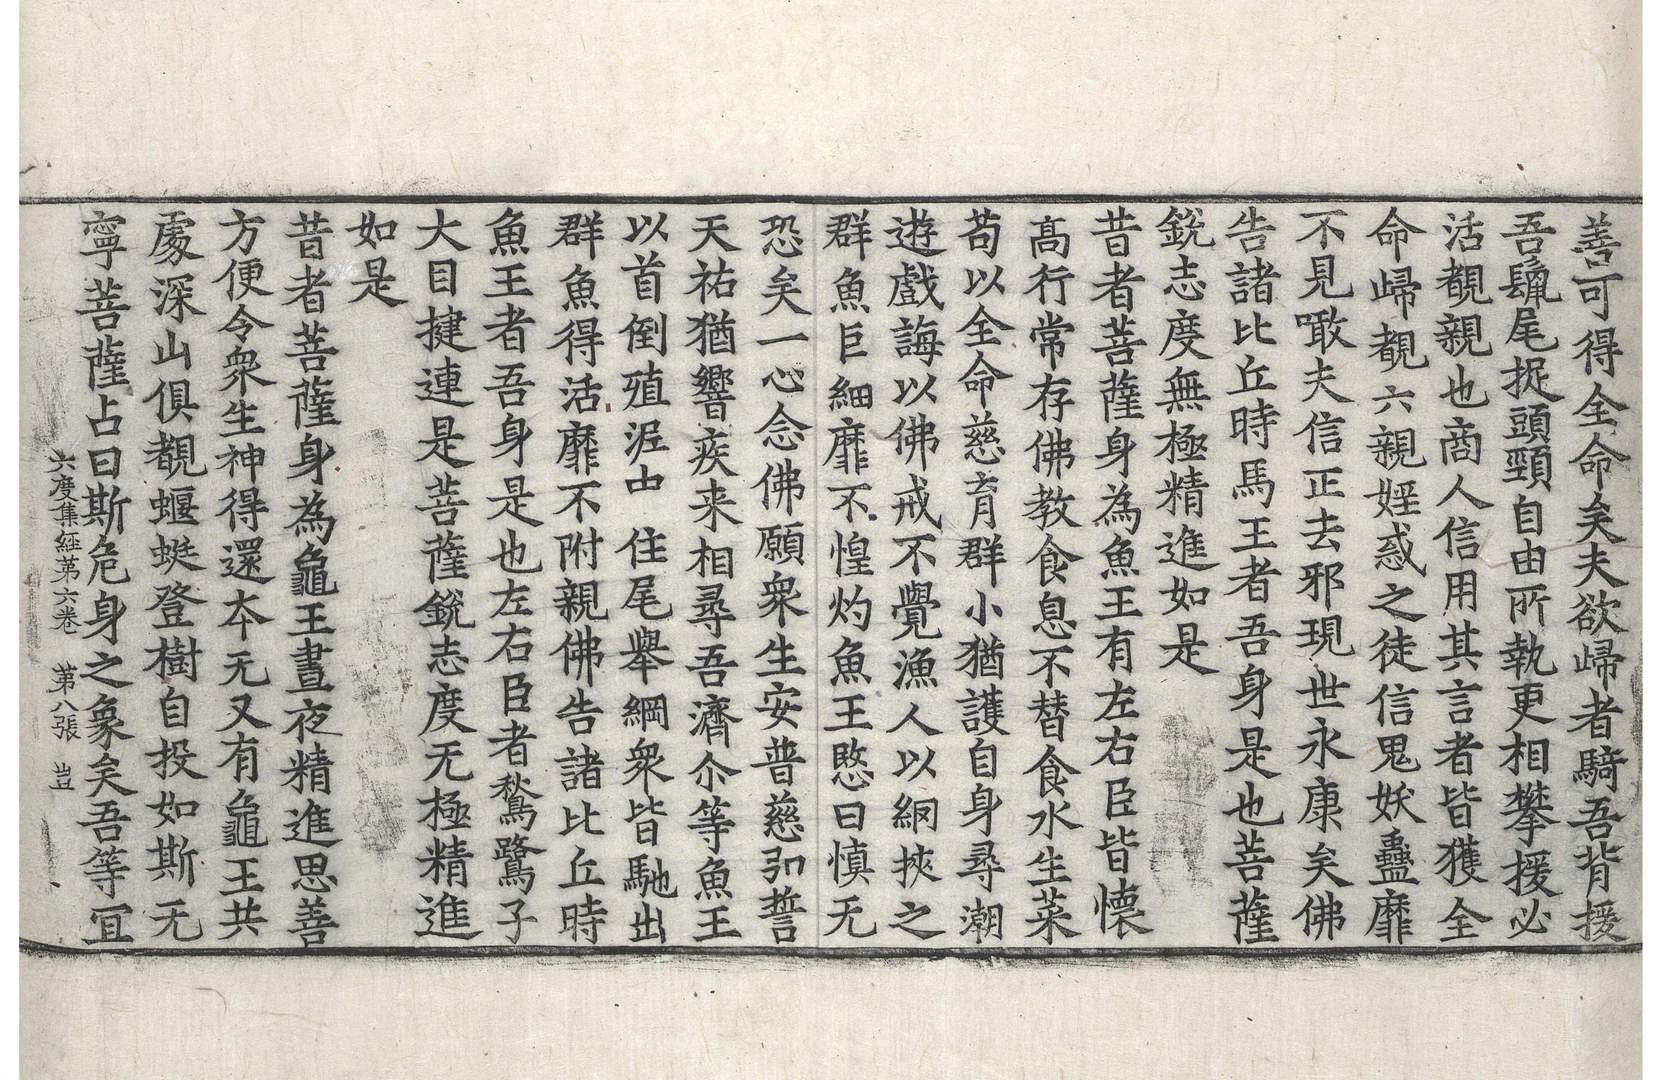 善可得全命矣夫欲歸者騎吾背援
吾鬣尾捉頭頸自由所執更相攀援必
活覩親也商人信用其言者皆獲全
命歸覩六親婬惑之徒信鬼妖蠱靡
不見噉夫信正去邪現世永康矣佛
告諸比丘時馬王者吾身是也菩薩
銳志度無極精進如是
昔者菩薩身為魚王有左右臣皆懷
高行常存佛教食息不替食水生菜
苟以全命慈育群小猶護自身尋潮
遊戲誨以佛戒不覺漁人以網挾之
群魚巨細靡不惶灼魚王愍曰慎无
恐矣一心念佛願衆生安普慈弘誓
天祐猶響疾来相尋吾濟尒等魚王
以首倒殖泥中 住尾舉綱衆皆馳出
群魚得活靡不附親佛告諸比丘時
魚王者吾身是也左右臣者鶖鷺子
大目揵連是菩薩銳志度无極精進
如是
昔者菩薩身為龜王晝夜精進思善
方便令衆生神得還夲无又有龜王共
處深山俱覩蝘蜓登樹自投如斯无
寧菩薩占曰斯危身之象矣吾等宜
六度集經第六卷 第八張 豈